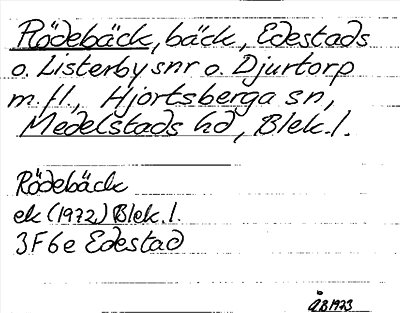 Rödebäck, bäck, Edestads
o. Listerby snr o. Djurtorp
m.fl., Hjortsberga sn,
Medelstads hd, Blek.l.
Rödebäck
ek (1972) Blek.l.
3F6e Edestad
ÅB1973